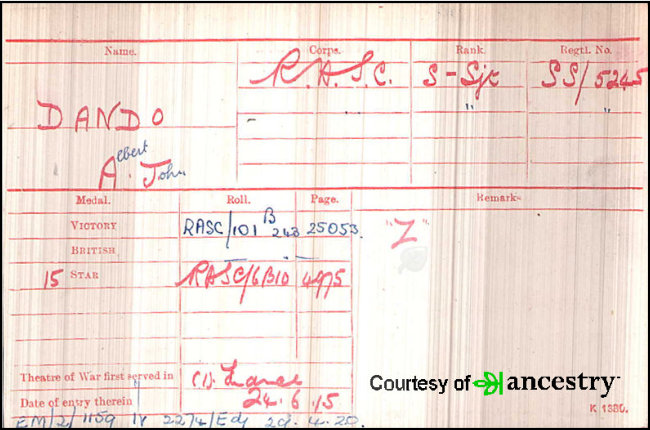 Name. Corps. Rank. Regtl. No.
R.A.S.C. S-Sjt SS/5245
" "
DANDO
Albert John
Medal. Roll. Page. Remarks
VICTORY RASC/101 B 243 25053. "Z"
BRITISH
15 STAR RASC/6B10 4975
Theatre of War first served in (1). France
Date of entry therein 24.6.15
EM/2/1159 2274/Edj 29.4.20.
Courtesy of ancestry
K 1380.